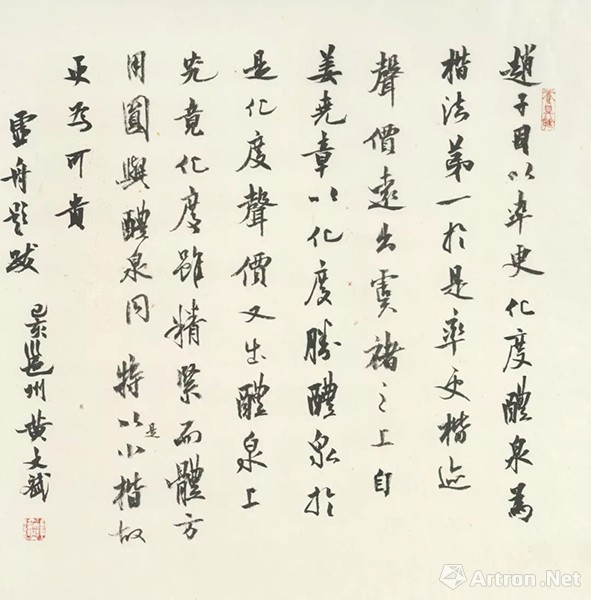 趙子固以率更化度醴泉為
楷法第一於是率更楷迹
聲價遠出虞褚之上自
姜堯章以化度勝醴泉於
是化度聲價又出醴泉上
究竟化度雖精緊而體方
用圓與醴泉同特以是小楷故
更為可貴
虛舟題跋
邕州黄文斌
雅昌艺术网
Artron.Net